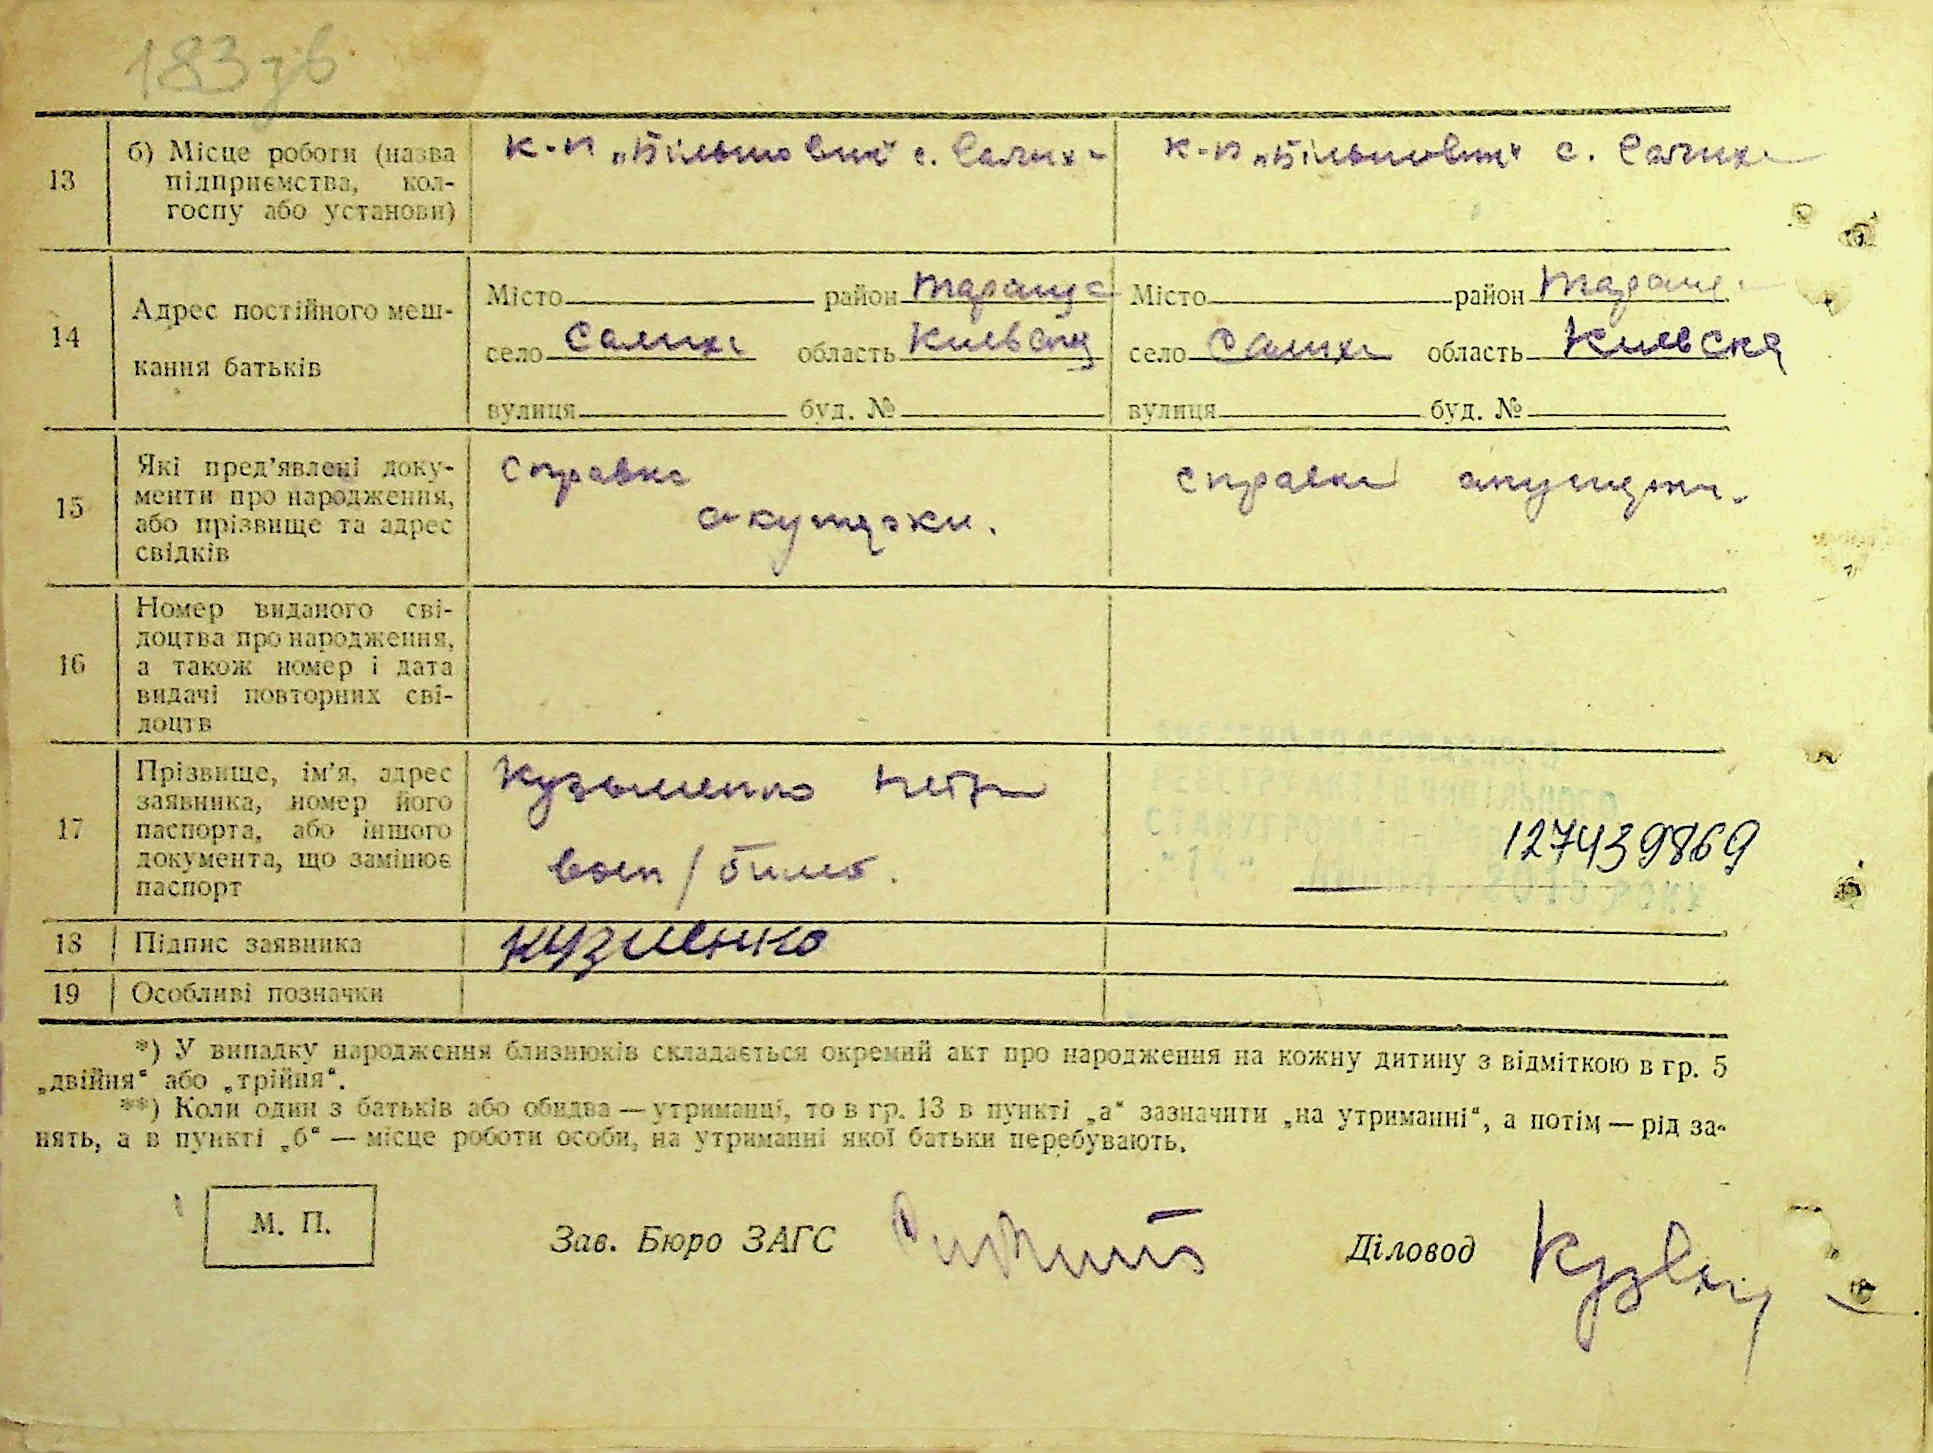 183 зв
13
б) Місце роботи (назва
підприємства, кол-
госпу або установи)
к-п „Більшовик“ с. Салиха
к-п „Більшовик“ с. Салиха
14
Адрес постійного меш-
кання батьків
Місто район Тараща
село Салиха область Київська
вулиця буд. №
Місто район Таращ.
село Салиха область Київська
вулиця буд. №
15
Які пред’явлені доку-
менти про народження,
або прізвище та адрес
свідків
справка
акушерки.
справка акушерки.
16
Номер виданого сві-
доцтва про народження,
а також номер і дата
видачі повторних сві-
доцтв
17
Прізвище, ім’я, адрес
заявника, номер його
паспорта, або іншого
документа, що замінює
паспорт
Кузьменко Петро
воен/билет.
127439869
18
Підпис заявника
Кузменко
19
Особливі позначки
*) У випадку народження близнюків складається окремий акт про народження на кожну дитину з відміткою в гр. 5
„двійня“ або „трійня“.
**) Коли один з батьків або обидва — утриманці, то в гр. 13 в пункті „а“ зазначити „на утриманні“, а потім — рід за-
нять, а в пункті „б“ — місце роботи особи, на утриманні якої батьки перебувають.
М. П.
Зав. Бюро ЗАГС
Діловод